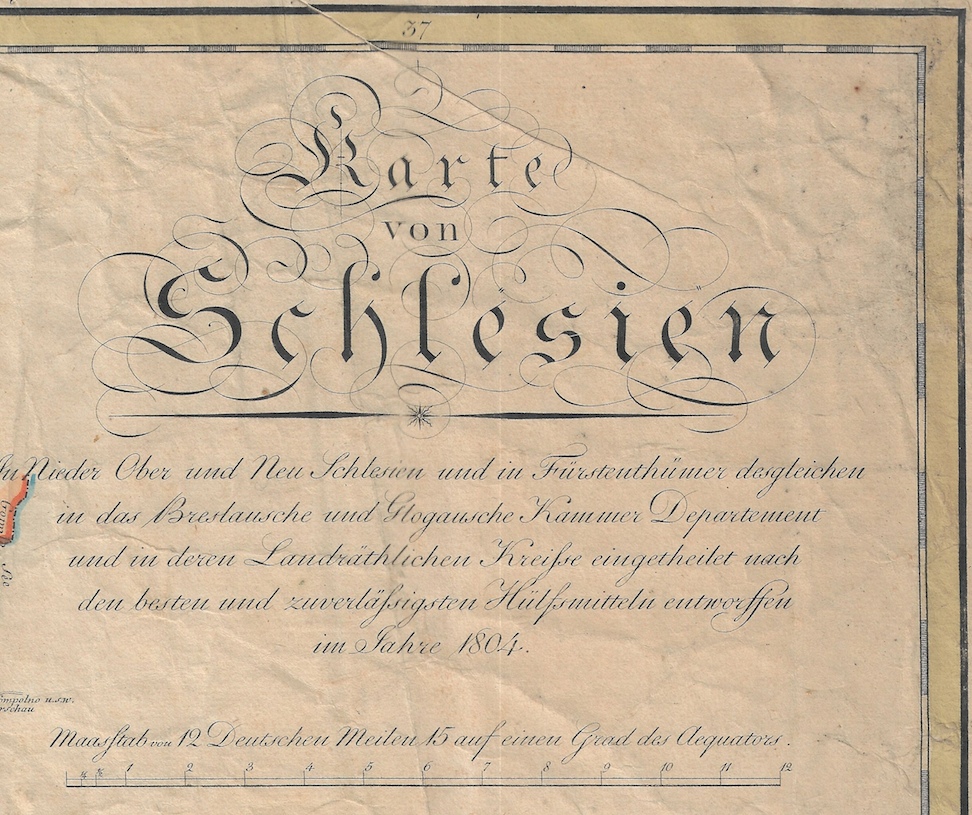 37
Karte
von
Schlesien
In Nieder Ober und Neu Schlesien und in Fürstenthümer desgleichen
in das Breslausche und Glogausche Kammer Departement
und in deren Landräthlichen Kreiſse eingetheilet nach
den besten und zuverläſsigsten Hülfsmitteln entworffen
im Jahre 1804.
u.s.w.
Maasſtab von 12 Deutschen Meilen 15 auf einen Grad des Aequators.
1 2 3 4 5 6 7 8 9 10 11 12